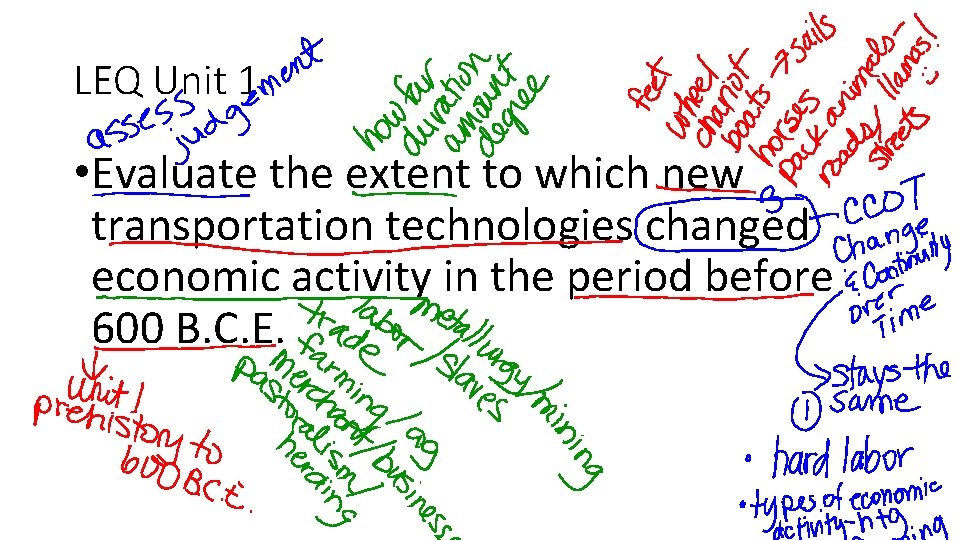 LEQ Unit 1
assess
judgement
how far
duration
amount
degree
feet
wheel
chariot
boats → sails
horses
pack animals-
llamas!
roads/
streets
•Evaluate the extent to which new
transportation technologies changed
economic activity in the period before
600 B.C.E.
3
CCOT
Change
& Continuity
over
Time
Stays the
① same
• hard labor
• types of economic
activity-htg
Unit 1
prehistory to
600 B.C.E.
labor/slaves
metallurgy/mining
trade
farming/ag
merchant/business
pastoralism/
herding